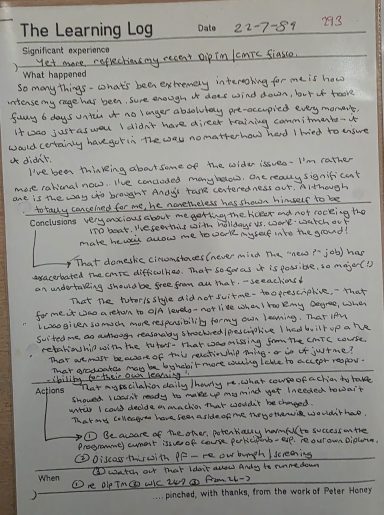 The Learning Log Date 22-7-89 293
Significant experience
Yet more, reflections my recent Dip TM/CMTC fiasco.
What happened
So many things - what's been extremely interesting for me is how
intense my rage has been. Sure enough it does wind down, but it took
fully 6 days until it no longer absolutely pre-occupied every moment.
It was just as well I didn't have direct training commitments - it
would certainly have got in the way no matter how hard I tried to ensure
it didn't.
I've been thinking about some of the wider issues - I'm rather
more rational now. I've concluded many below. One really significant
one is the way its brought Andy's task centeredness out. Although
totally concerned for me, he nonetheless has shown himself to be
Conclusions very anxious about me getting the ticket and not rocking the
ITD boat. I've seen this with holidays vs. work - watch out
make he allow me to work myself into the ground!
That domestic circumstances (never mind the "new?" job) has
exacerbated the CMTC difficulties. That so far as it is possible, so major (!)
an undertaking should be free from all that. - see actions
That the tutor/s style did not suit me - too prescriptive, - that
for me it was a return to O/A levels - not like when I took my Degree, when
I was given so much more responsibility for my own learning. That IPM
suited me as although reasonably structured/prescriptive I had built up a +ve
relationship with the tutors - that was missing from the CMTC course.
That we must be aware of this relationship thing - or is it just me?
That graduates may be by habit more willing/able to accept respon-
-sibility for their own learning.
Actions That my oscilation daily/hourly re. what course of action to take
showed I wasn't ready to make up my mind yet I needed to wait
until I could decide on action that wouldn't be changed.
That my colleagues have seen a side of me they otherwise wouldn't have.
① Be aware of the other, potentially harmful (to success on the
Programme) current issues of course participants - esp. re our own Diploma.
② Discuss this with - re our bumph / screening
③ watch out that I don't allow Andy to run me down
When ① re Dip TM ② w/c 24/7 ③ From 26-7
....pinched, with thanks, from the work of Peter Honey